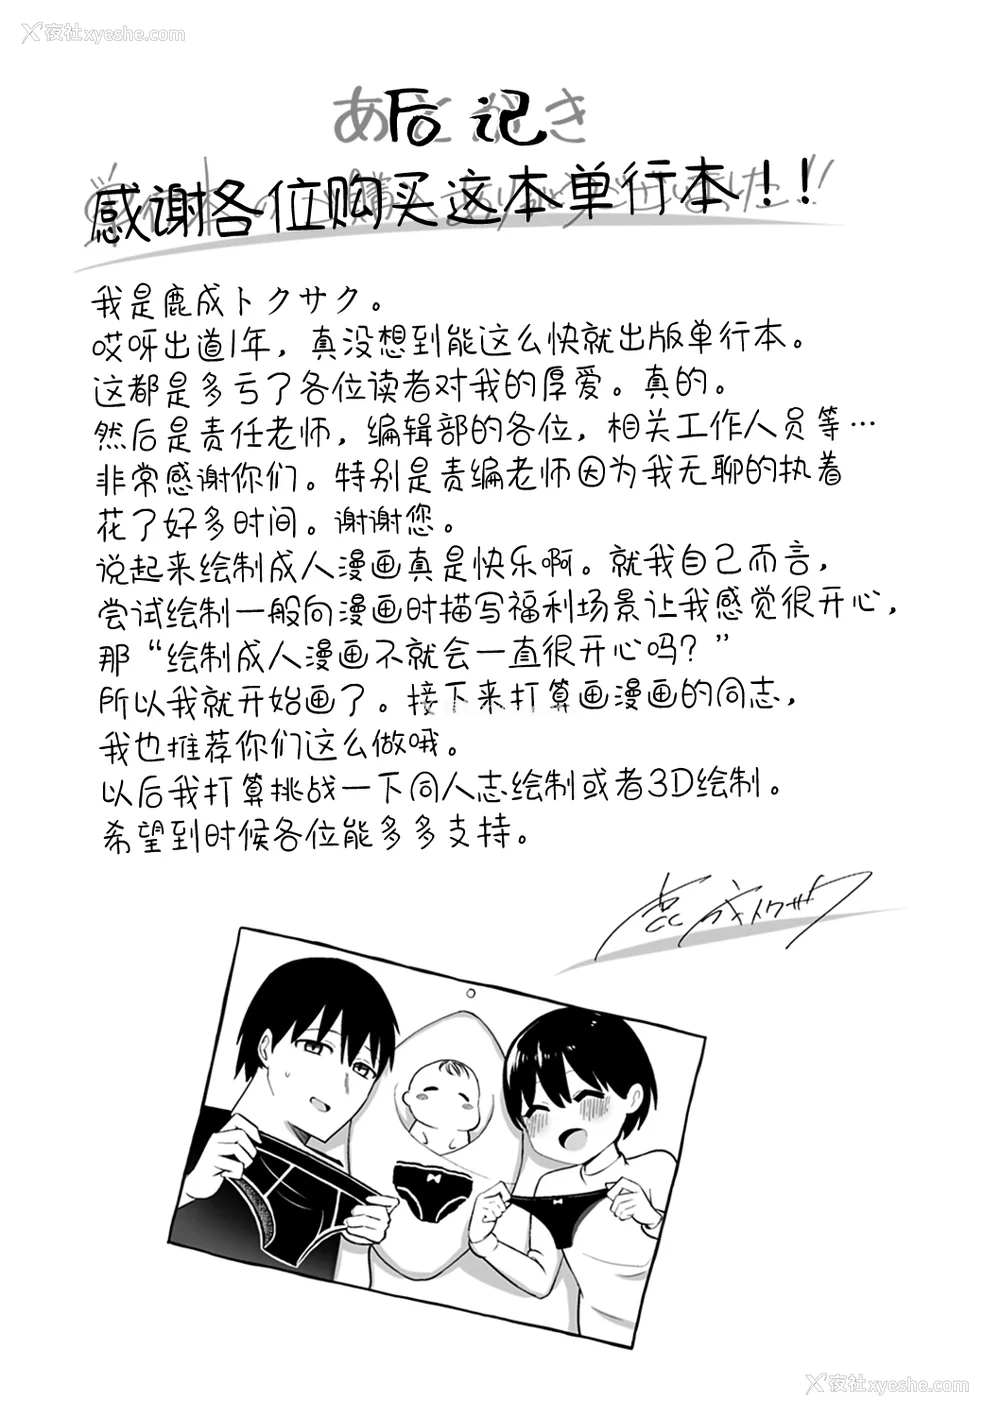 夜社xyeshe.com
后记
感谢各位购买这本单行本!!
我是鹿成トクサク。
哎呀出道1年，真没想到能这么快就出版单行本。
这都是多亏了各位读者对我的厚爱。真的。
然后是责任老师，编辑部的各位，相关工作人员等…
非常感谢你们。特别是责编老师因为我无聊的执着
花了好多时间。谢谢您。
说起来绘制成人漫画真是快乐啊。就我自己而言，
尝试绘制一般向漫画时描写福利场景让我感觉很开心，
那“绘制成人漫画不就会一直很开心吗？”
所以我就开始画了。接下来打算画漫画的同志，
我也推荐你们这么做哦。
以后我打算挑战一下同人志绘制或者3D绘制。
希望到时候各位能多多支持。
鹿成トクサク
夜社xyeshe.com